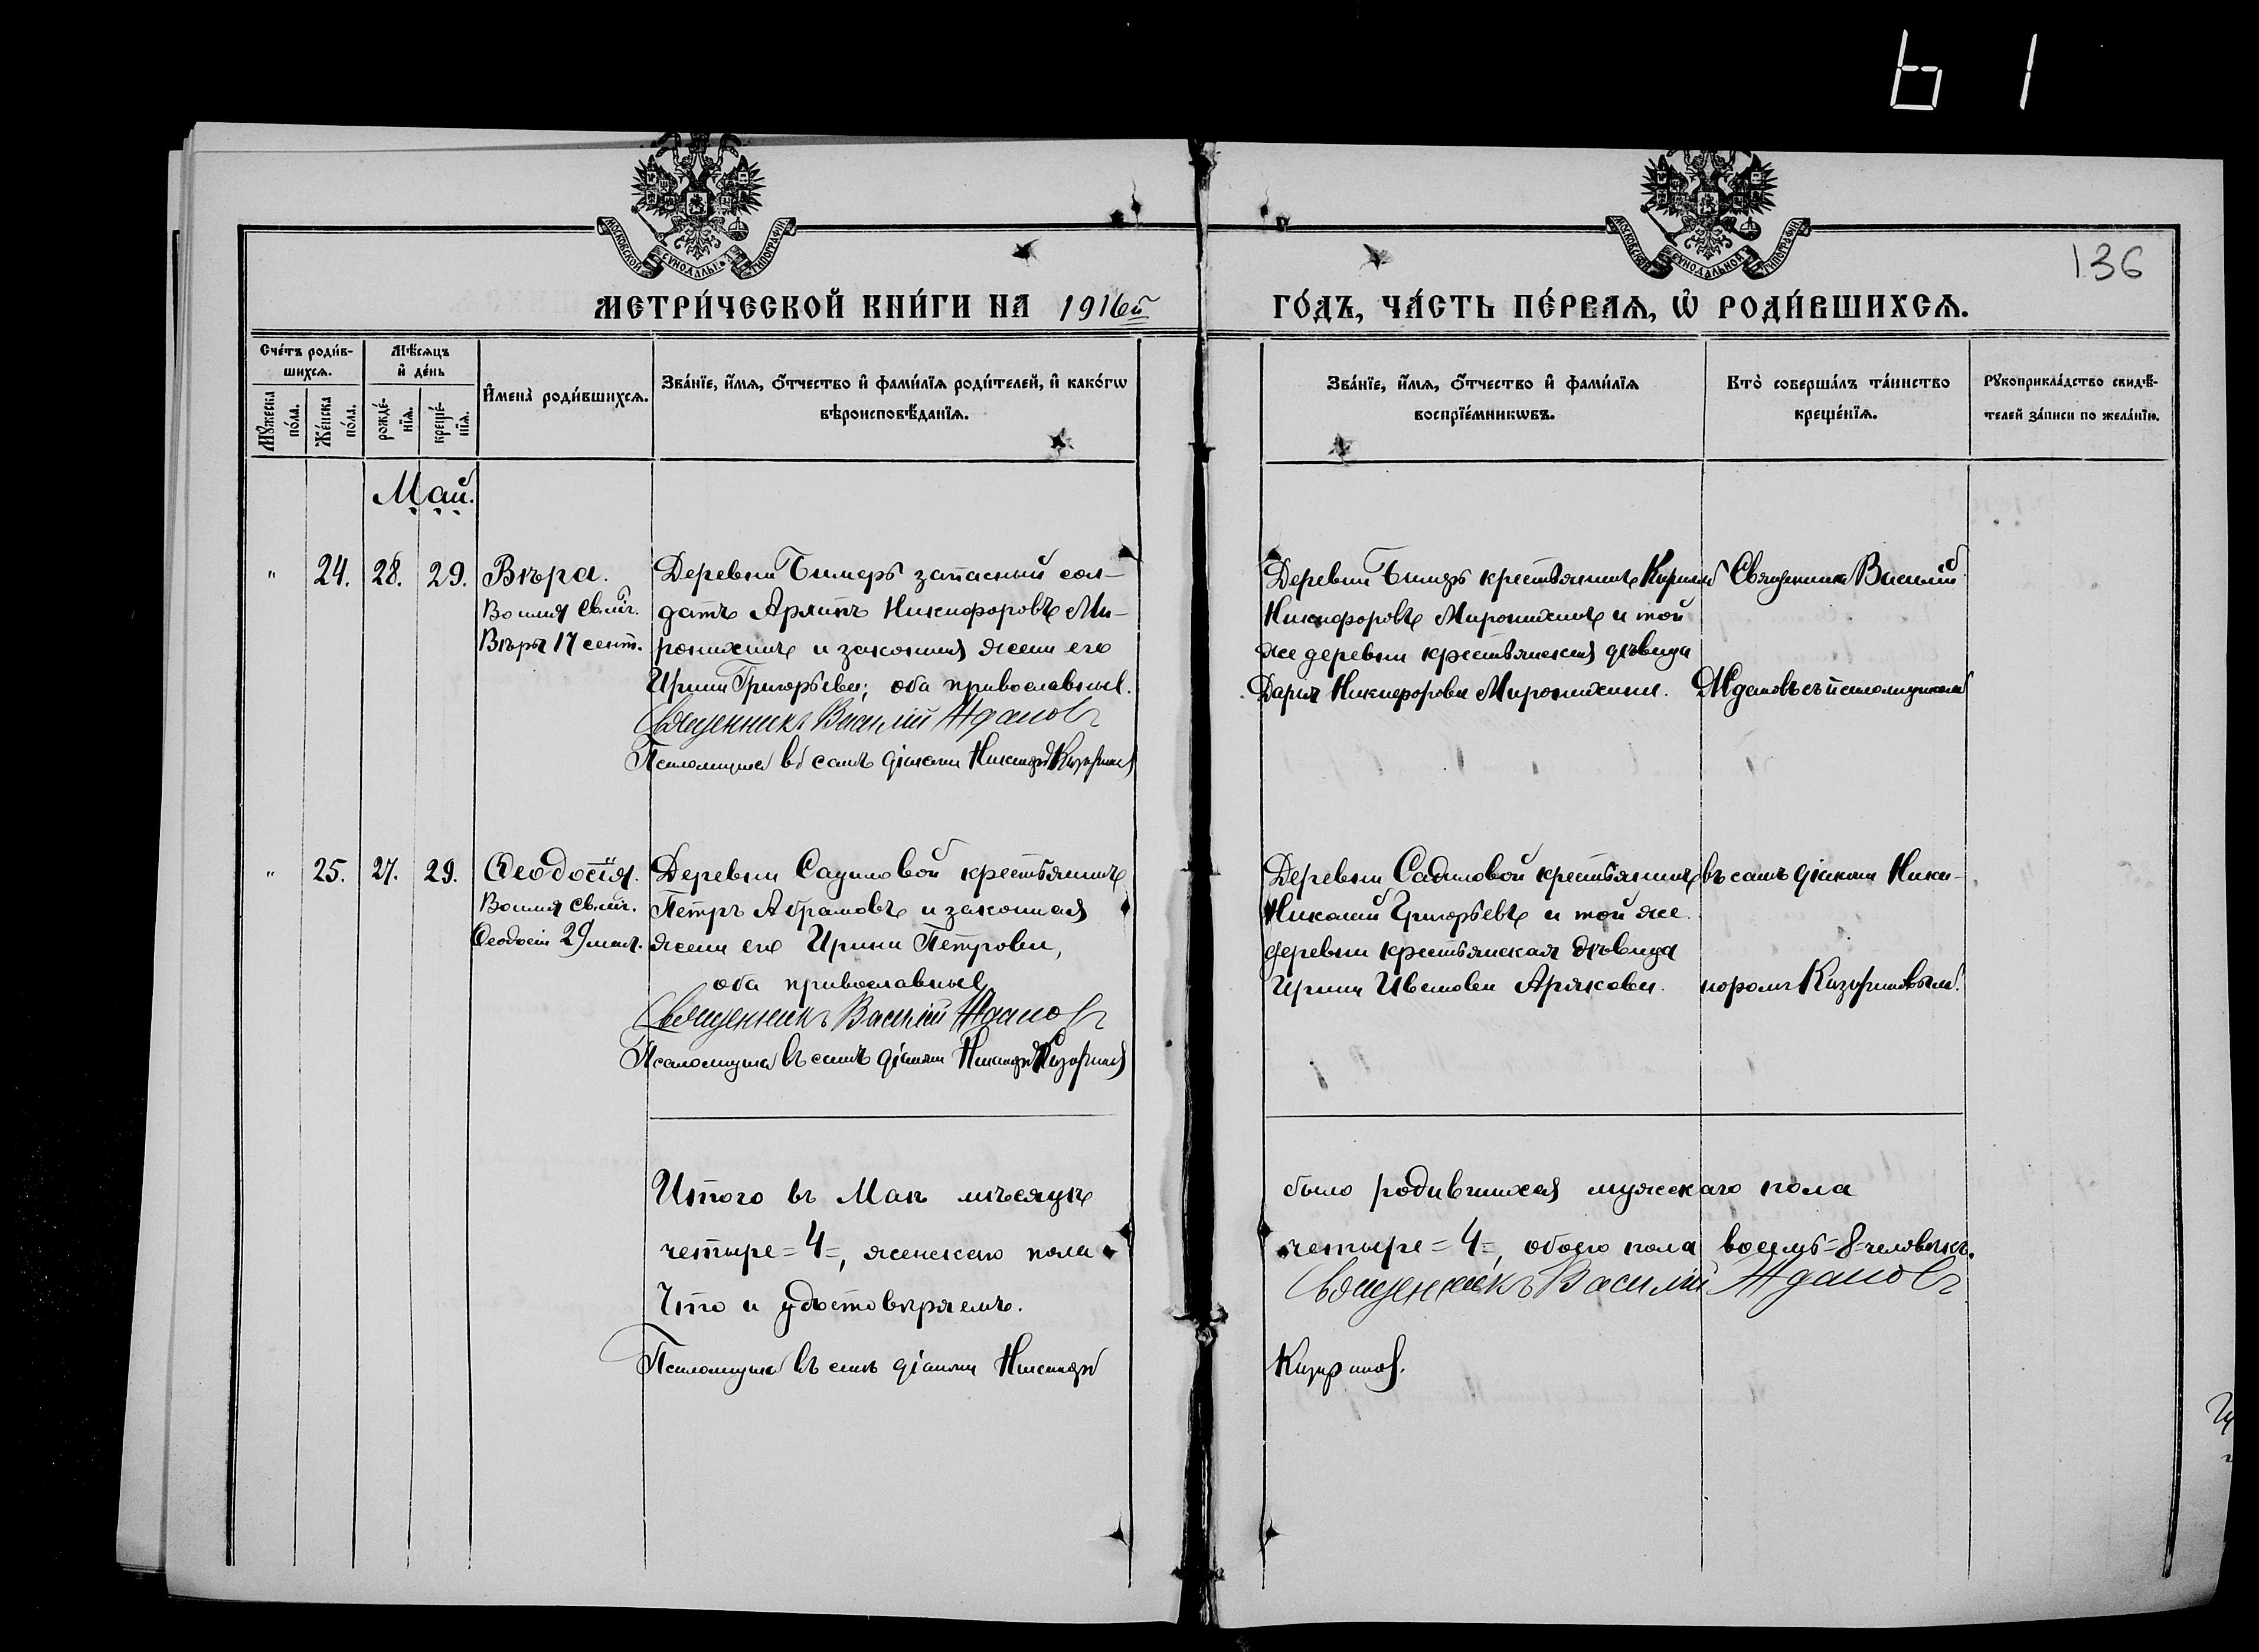 Ь 1
136
МОСКОВСКОЙ СѴНОДАЛЬНОЙ ТИПОГРАФІИ
МОСКОВСКОЙ СѴНОДАЛЬНОЙ ТИПОГРАФІИ
МЕТРИ́ЧЕСКОЙ КНИ́ГИ НА 1916й ГО́ДЪ, ЧА́СТЬ ПЕ́РВАѦ, Ѡ҆ РОДИ́ВШИХСѦ.
Сче́тъ роди́в-
шихсѧ.
Мꙋжеска по́ла.
Же́нска по́ла.
Мѣ́сѧцъ
и҆ де́нь
рожде́-нїѧ.
креще́-нїѧ.
И҆мена̀ роди́вшихсѧ.
Зва́нїе, и҆́мѧ, ѻ҆́тчество и҆ фами́лїѧ роди́телей, и҆ како́гѡ
вѣроисповѣ́данїѧ.
Зва́нїе, и҆́мѧ, ѻ҆́тчество и҆ фами́лїѧ
воспрїе́мникѡвъ.
Кто̀ соверша́лъ та́инство
креще́нїѧ.
Рꙋкоприкла́дство свидѣ́-
телей за́писи по жела́нїю.
Май.
" 24. 28. 29. Вѣра.
Во имя св. мч.
Вѣры 17 сент.
Деревни Бимеръ запасный сол-
датъ Никифоровъ Ми-
ронихинъ и законная жена его
Ирина Григорьева; оба православные.
Священникъ Василій Ждановъ
Псаломщикъ въ санѣ діакона Никаноръ
Деревни Бимеръ крестьянинъ Кириллъ
Никифоровъ Миронихинъ и той
же деревни крестьянская дѣвица
Дарія Никифорова Миронихина.
Священникъ Василій
Ждановъ съ псаломщикомъ
" 25. 27. 29. Ѳеодосія.
Во имя св. мч.
Ѳеодосіи 29 мая.
Деревни Садиловой крестьянинъ
Петръ Абрамовъ и законная
жена его Ирина Петрова,
оба православные
Священникъ Василій Ждановъ
Псаломщикъ въ санѣ діакона Никаноръ
Деревни Садиловой крестьянинъ
Николай Григорьевъ и той же
деревни крестьянская дѣвица
Ирина Иванова
въ санѣ діакона Ника-
норомъ
Итого въ Маѣ мѣсяцѣ было родившихся мужскаго пола
четыре = 4 =, женскаго пола четыре = 4 =, обоего пола восемь = 8 = человѣкъ.
Что и удостовѣряемъ. Священникъ Василій Ждановъ
Псаломщикъ въ санѣ діакона Никаноръ